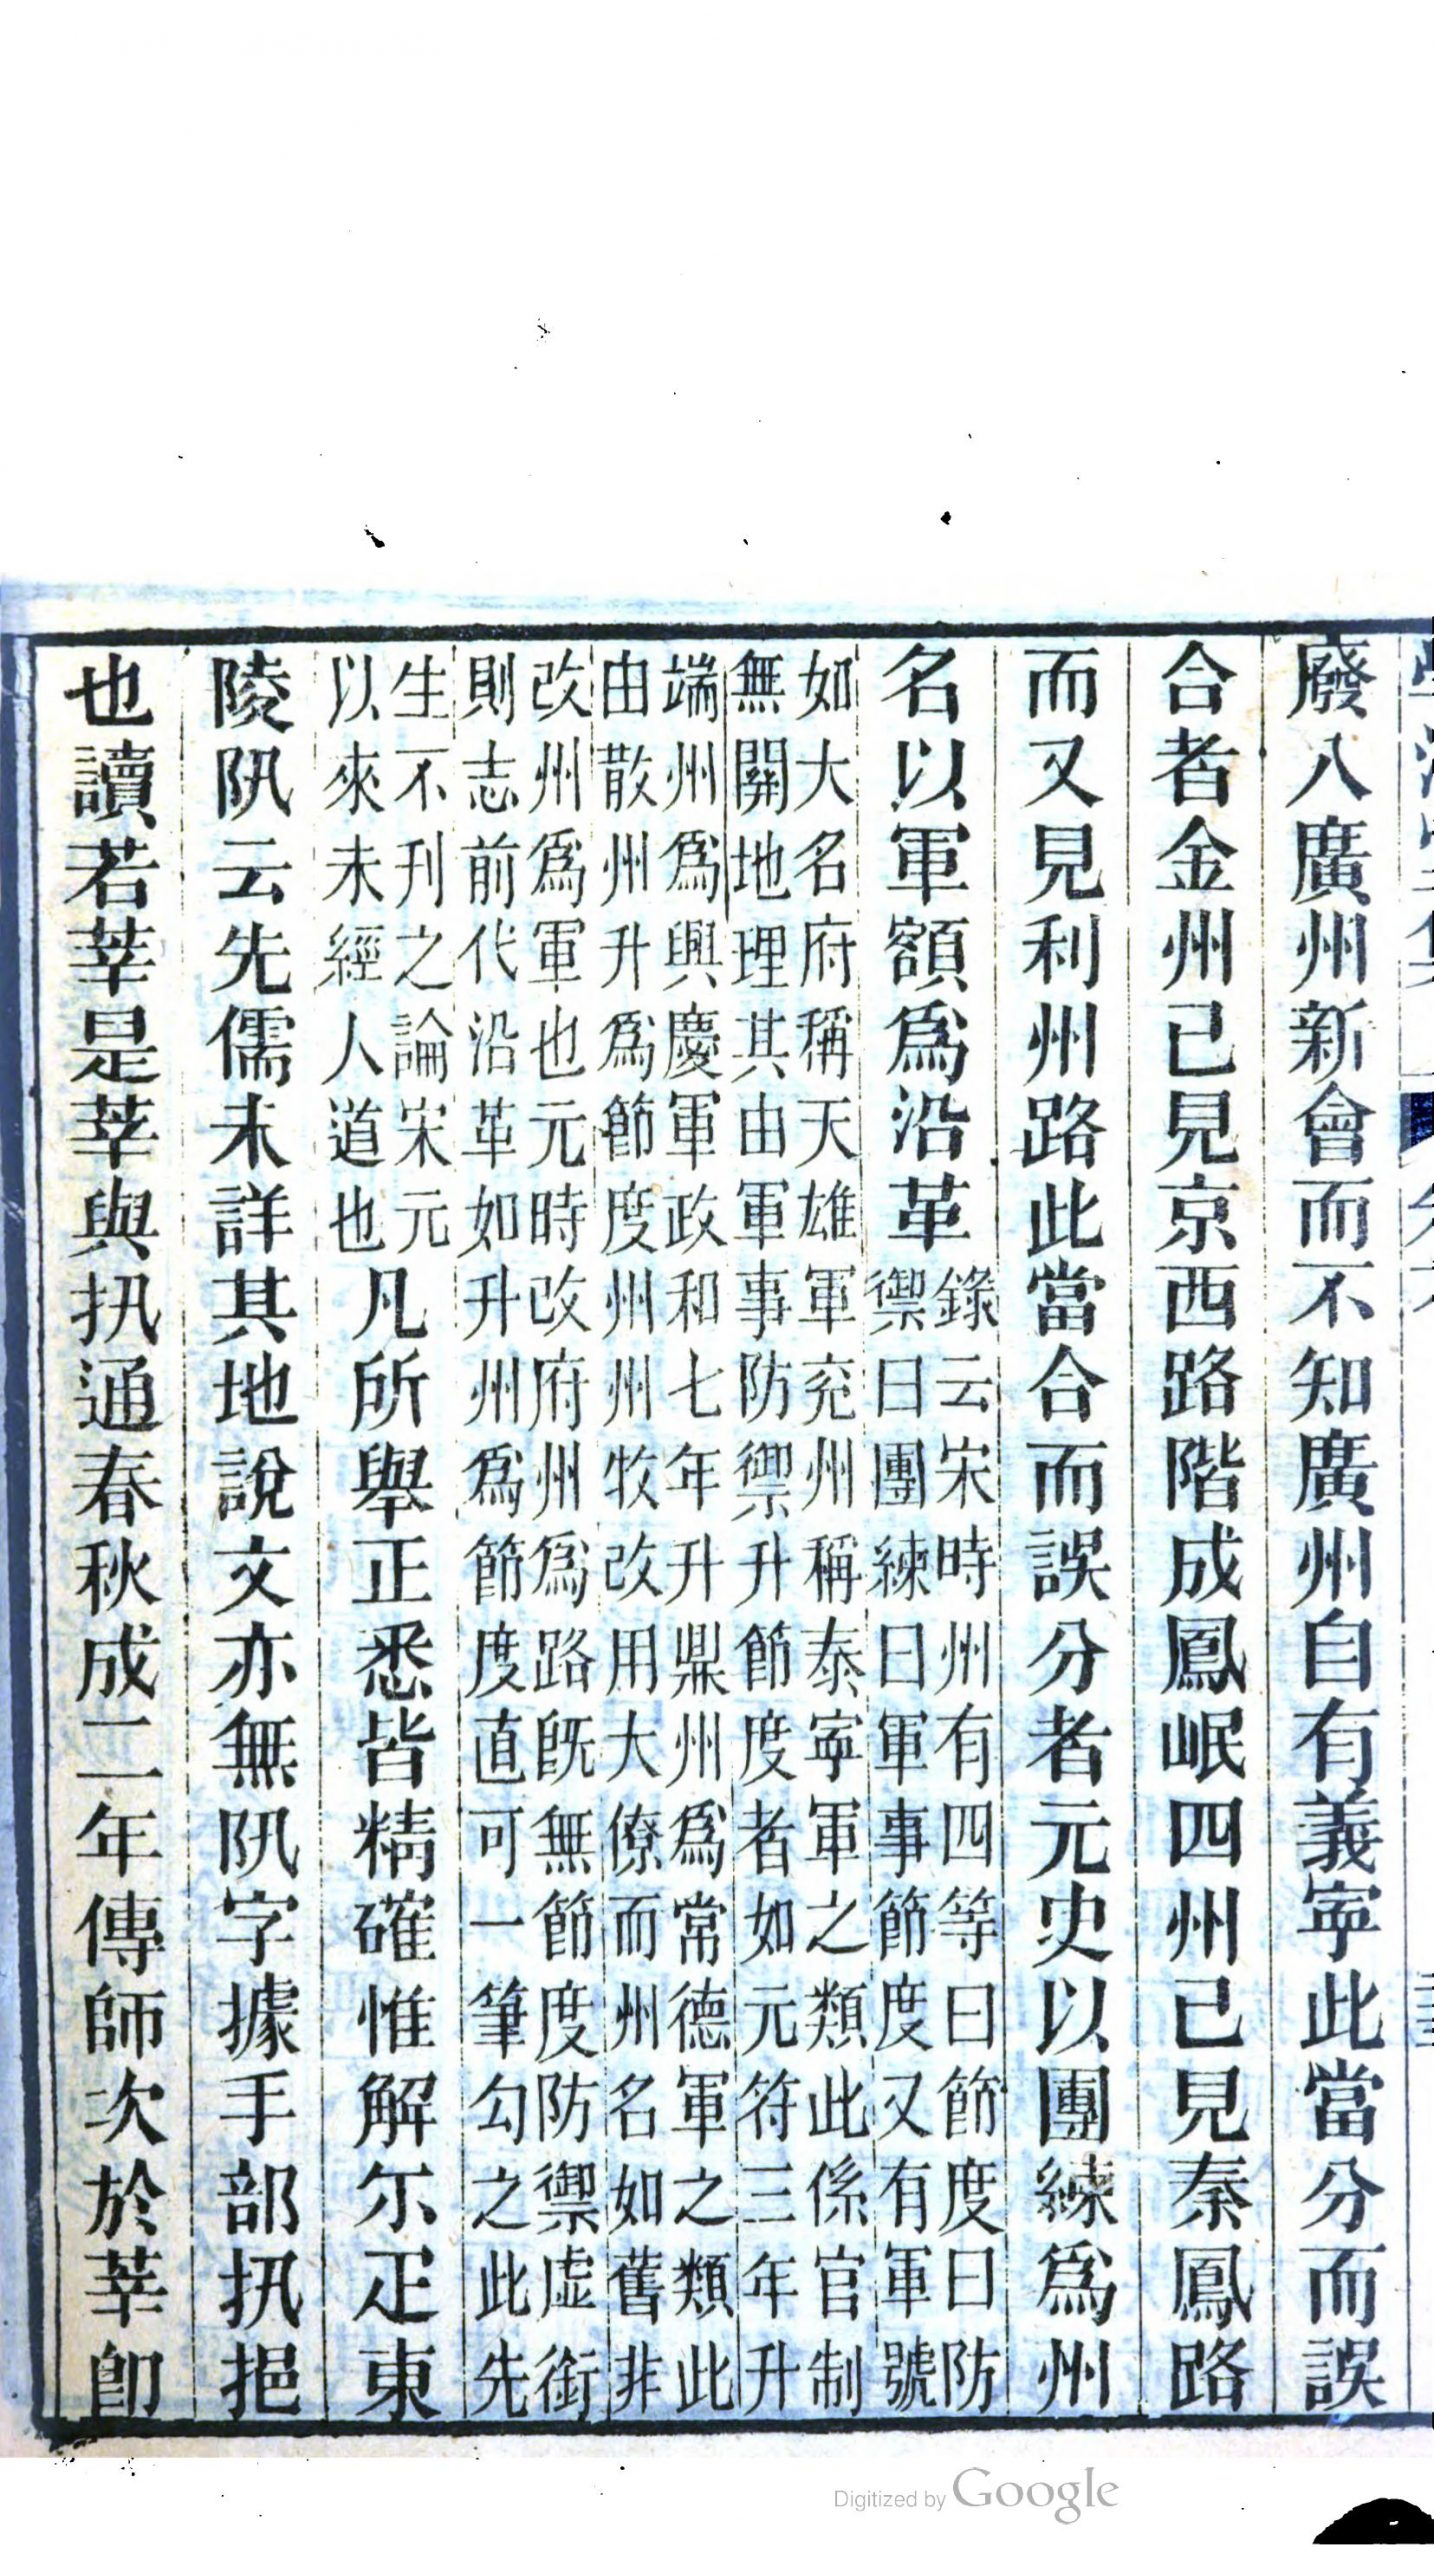 廢入廣州新會而不知廣州自有義寕此當分而誤
合者金州已見京西路階成鳳岷四州已見秦鳳路
而又見利州路此當合而誤分者元史以團練爲州
名以軍額爲沿革
錄云宋時州有四等曰節度曰防
禦曰團練曰軍事節度又有軍號
如大名府稱天雄軍兖州稱泰寕軍之類此係官制
無關地理其由軍事防禦升節度者如元符三年升
端州爲興慶軍政和七年升鼎州爲常德軍之類此
由散州升爲節度州州牧改用大僚而州名如舊非
改州爲軍也元時改府州爲路旣無節度防禦虛銜
則志前代沿革如升州爲節度直可一筆勾之此先
生不刊之論宋元
以來未經人道也
凡所舉正悉皆精確惟解尓疋東
陵阠云先儒未詳其地說文亦無阠字據手部扟挹
也讀若莘是莘與扟通春秋成二年傳師次於莘卽
Digitized by Google